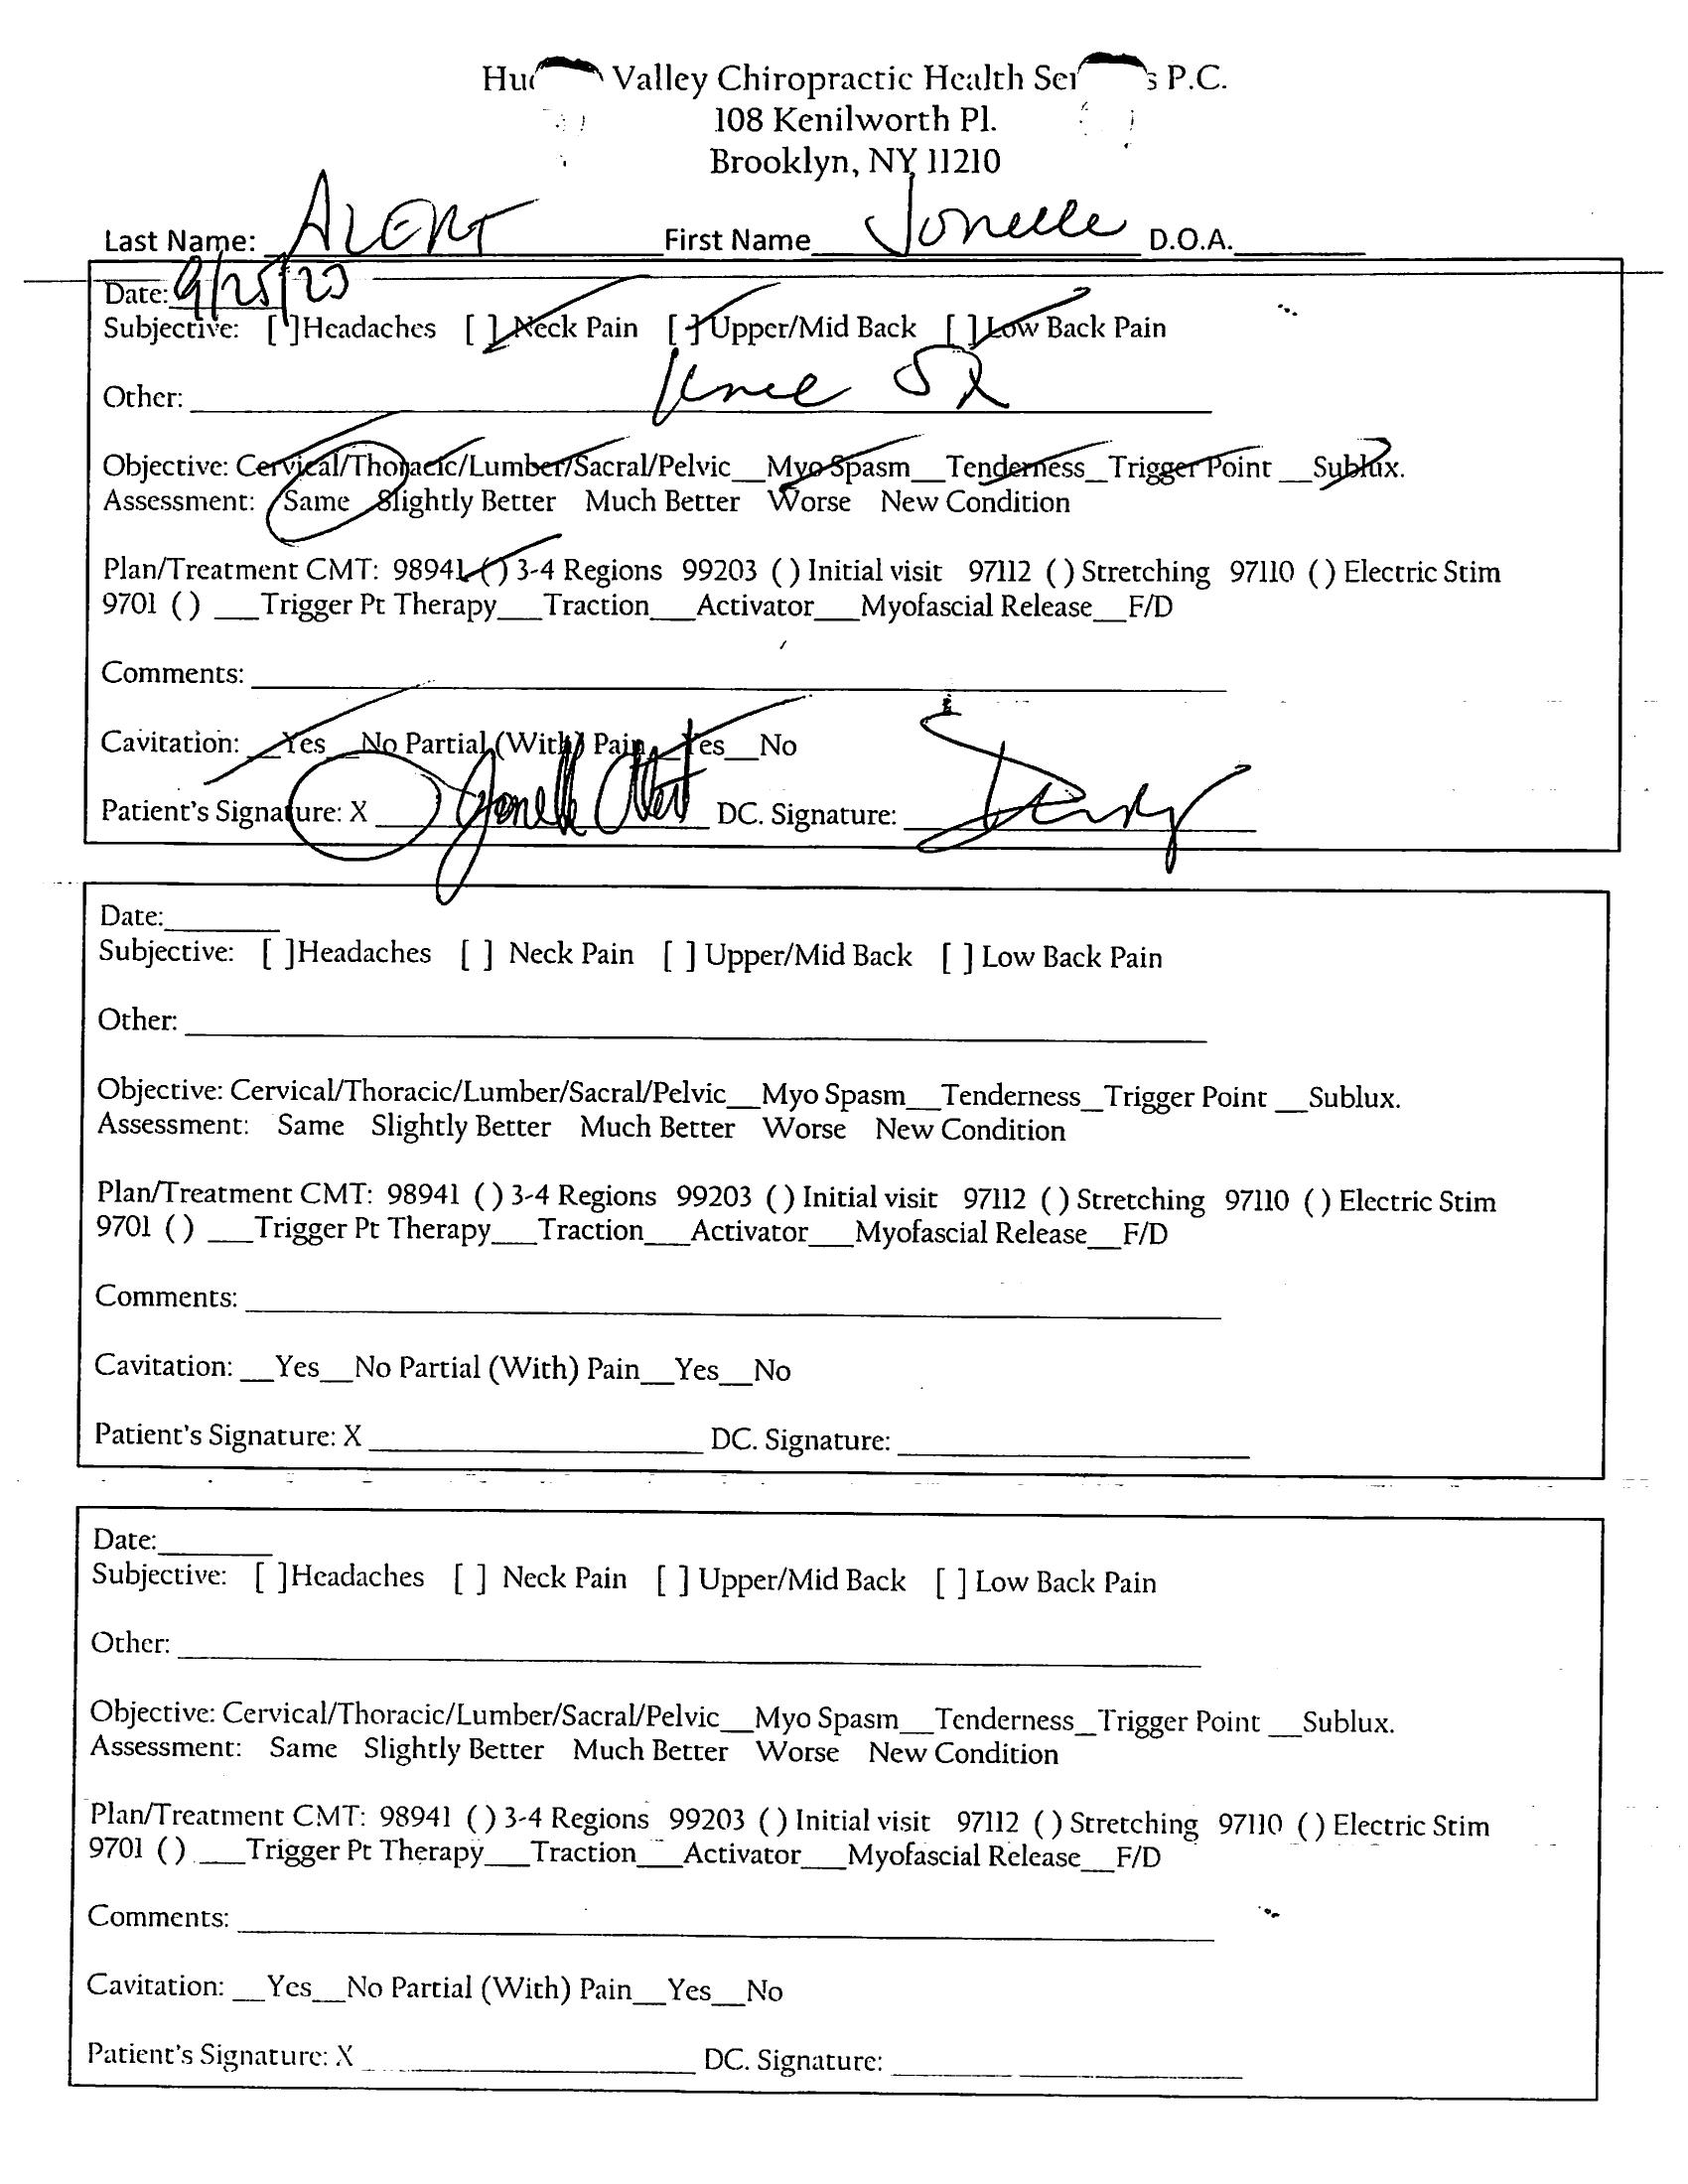 Hu Valley Chiropractic Health Ser s P.C.
108 Kenilworth Pl.
Brooklyn, NY 11210
Last Name: ALERT First Name Jonelle D.O.A.
Date: 9/25/23
Subjective: [ ]Headaches [ ] Neck Pain [ ] Upper/Mid Back [ ] Low Back Pain
Other: knee SX
Objective: Cervical/Thoracic/Lumber/Sacral/Pelvic__Myo Spasm__Tenderness_Trigger Point __Sublux.
Assessment: Same Slightly Better Much Better Worse New Condition
Plan/Treatment CMT: 98941 ( ) 3-4 Regions 99203 ( ) Initial visit 97112 ( ) Stretching 97110 ( ) Electric Stim
9701 ( ) ___Trigger Pt Therapy___Traction___Activator___Myofascial Release__F/D
Comments:
Cavitation: __Yes__No Partial (With) Pain__Yes__No
Patient's Signature: X Jonelle Alert DC. Signature:
Date:
Subjective: [ ]Headaches [ ] Neck Pain [ ] Upper/Mid Back [ ] Low Back Pain
Other:
Objective: Cervical/Thoracic/Lumber/Sacral/Pelvic__Myo Spasm__Tenderness_Trigger Point __Sublux.
Assessment: Same Slightly Better Much Better Worse New Condition
Plan/Treatment CMT: 98941 ( ) 3-4 Regions 99203 ( ) Initial visit 97112 ( ) Stretching 97110 ( ) Electric Stim
9701 ( ) ___Trigger Pt Therapy___Traction___Activator___Myofascial Release__F/D
Comments:
Cavitation: __Yes__No Partial (With) Pain__Yes__No
Patient's Signature: X DC. Signature:
Date:
Subjective: [ ]Headaches [ ] Neck Pain [ ] Upper/Mid Back [ ] Low Back Pain
Other:
Objective: Cervical/Thoracic/Lumber/Sacral/Pelvic__Myo Spasm__Tenderness_Trigger Point __Sublux.
Assessment: Same Slightly Better Much Better Worse New Condition
Plan/Treatment CMT: 98941 ( ) 3-4 Regions 99203 ( ) Initial visit 97112 ( ) Stretching 97110 ( ) Electric Stim
9701 ( ) ___Trigger Pt Therapy___Traction___Activator___Myofascial Release__F/D
Comments:
Cavitation: __Yes__No Partial (With) Pain__Yes__No
Patient's Signature: X DC. Signature: